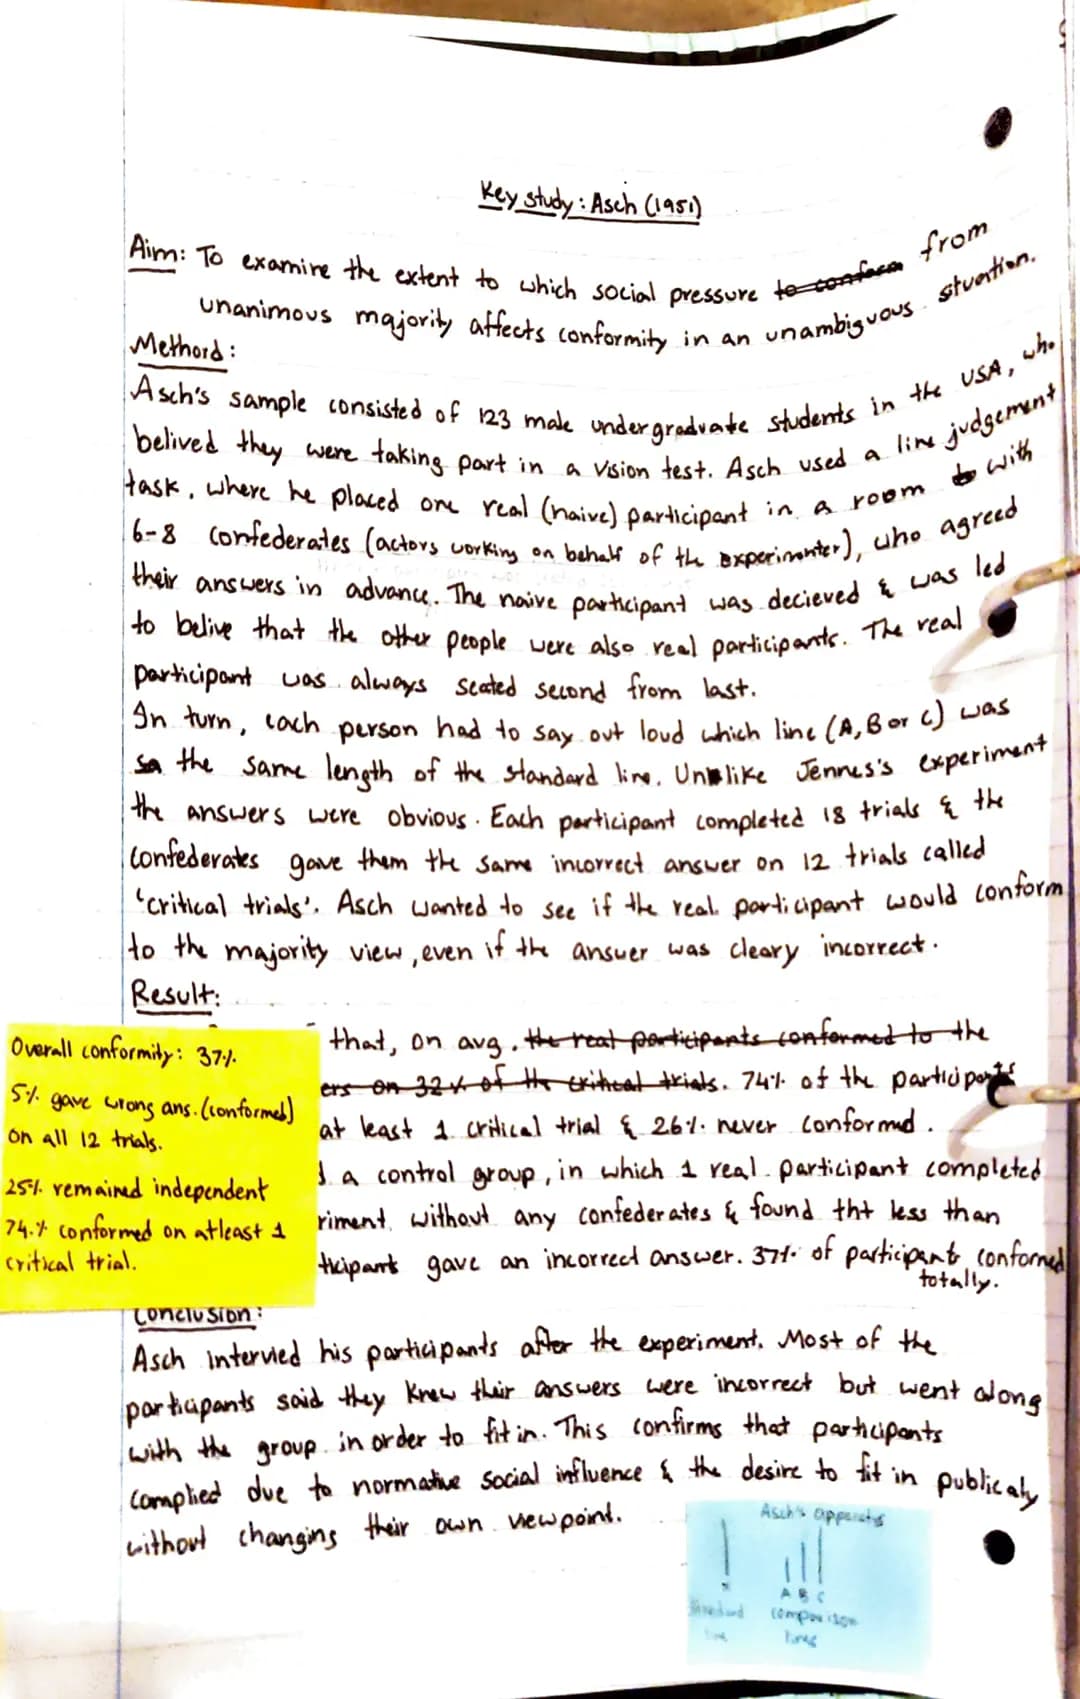 Key study: Asch (1951)
Aim: To examine the extent to which social pressure to conform from
unanimous majority affects conformity in an unambiguous situation.
Methord:
Asch's sample consisted of 123 male undergraduate students in the USA, who
belived they were taking part in a vision test. Asch used a line judgement
task, where he placed one real (naive) participant in a room to with
6-8 confederates (actors working on behalf of the experimenter), who agreed
their answers in advance. The naive participant was decieved & was led
to belive that the other people were also real participants. The real
participant was always seated second from last.
In turn, each person had to say out loud which line (A, B or C) was
sa the same length of the standard line. Unlike Jennes's experiment
the answers were obvious. Each participant completed 18 trials & the
confederates gave them the same incorrect answer on 12 trials called
'critical trials'. Asch wanted to see if the real participant would conform
to the majority view, even if the answer was cleary incorrect.
Result:
that, on avg. the real participants conformed to the
ers on 32% of the critical trials. 74% of the participants
at least 1 critical trial & 26% never conformed.
d a control group, in which 1 real participant completed
riment without any confederates & found tht less than
ticipant gave an incorrect answer. 37% of participant conformed
totally.
Overall conformity: 37%
5% gave wrong ans. (conformed)
on all 12 trials.
25% remained independent
74.% conformed on atleast 1
critical trial.
Conclusion:
Asch intervied his participants after the experiment. Most of the
participants said they knew their answers were incorrect but went along
with the group in order to fit in. This confirms that participants
complied due to normative social influence & the desire to fit in publicaly
without changing their own viewpoint.
Asch's apparatus
A B C
Standard comparison
line lines